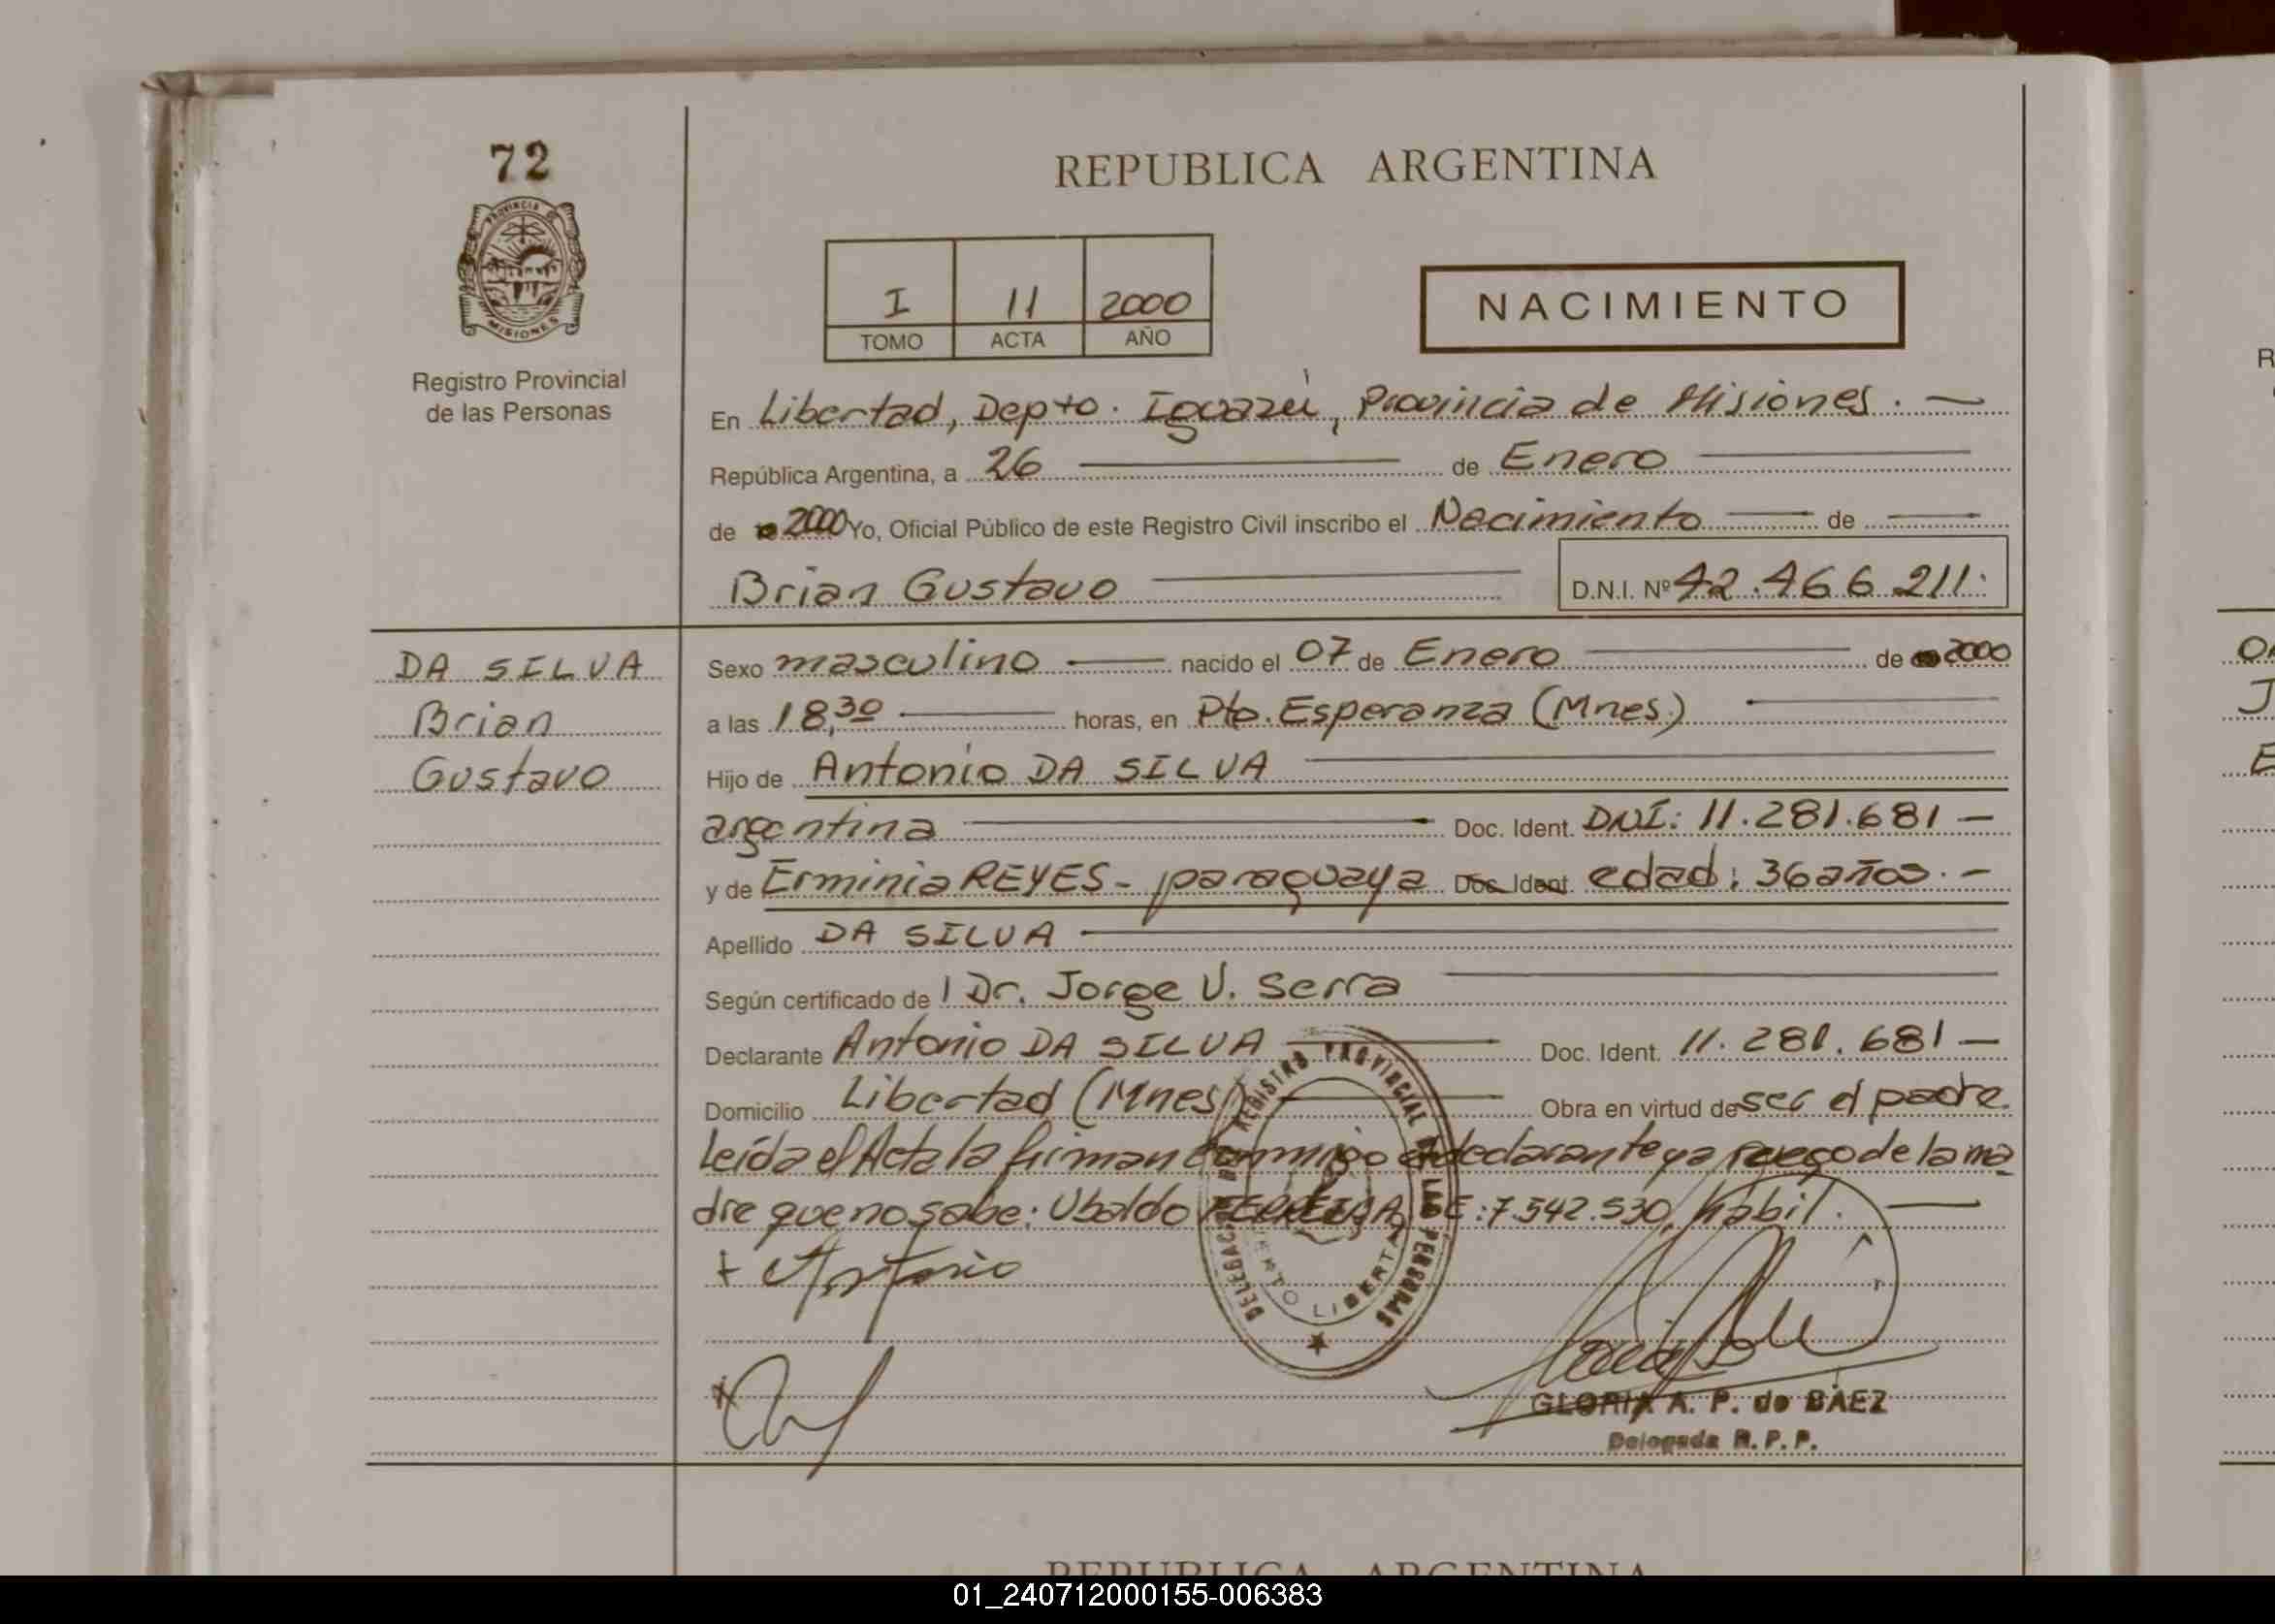 72
PROVINCIA DE
MISIONES
Registro Provincial
de las Personas
REPUBLICA ARGENTINA
I 11 2000
TOMO ACTA AÑO
NACIMIENTO
En Libertad, Depto. Iguazú, Provincia de Misiones. —
República Argentina, a 26 — de Enero —
de 2000 Yo, Oficial Público de este Registro Civil inscribo el Nacimiento — de —
Brian Gustavo — D.N.I. Nº 42.466.211.
DA SILVA
Brian
Gustavo
Sexo masculino — nacido el 07 de Enero — de 2000
a las 18,30 — horas, en Pto. Esperanza (Mnes.) —
Hijo de Antonio DA SILVA —
argentina — Doc. Ident. DNI: 11.281.681 —
y de Erminia REYES - paraguaya Doc. Ident. edad: 36 años. -
Apellido DA SILVA —
Según certificado de l Dr. Jorge V. Serra —
Declarante Antonio DA SILVA — Doc. Ident. 11.281.681 —
Domicilio Libertad (Mnes) — Obra en virtud de ser el padre.
Leída el Acta la firman conmigo el declarante y a ruego de la ma
dre que no sabe: Ubaldo FERREIRA, LE: 7.542.530, hábil. —
+ Antonio
DELEGACION DEL REGISTRO PROVINCIAL DE LAS PERSONAS
LIBERTAD
GLORIA A. P. de BAEZ
Delegada R. P. P.
R
J
E
REPUBLICA ARGENTINA
01_240712000155-006383